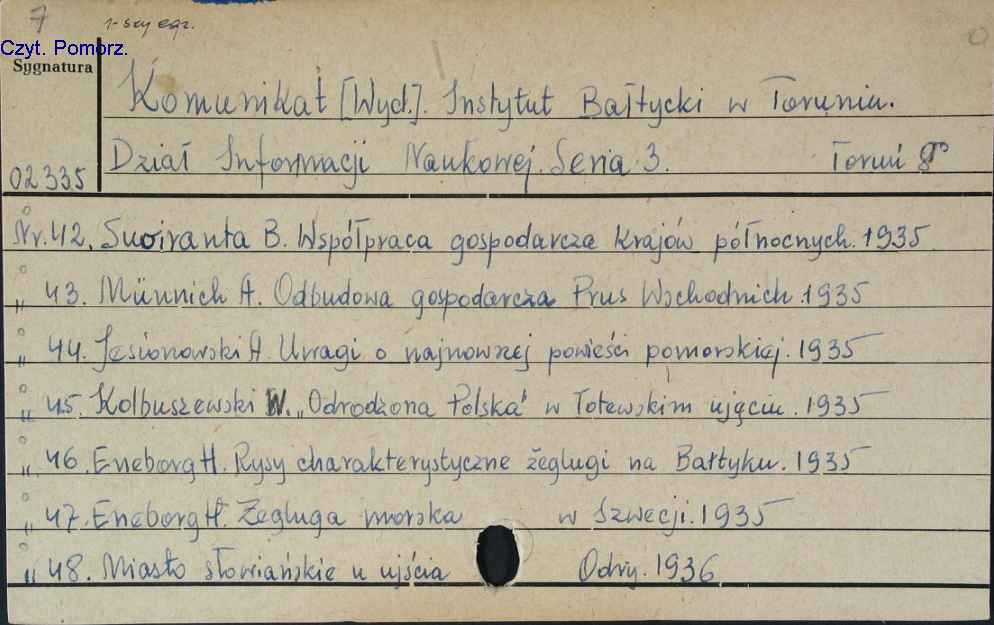 7 1-szy egz.
Czyt. Pomorz.
Sygnatura
Komunikat [Wyd.]. Instytut Bałtycki w Toruniu.
02335 Dział Informacji Naukowej. Seria 3. Toruń 8°
Nr. 42. Suviranta B. Współpraca gospodarcza Krajów północnych. 1935
„ 43. Münnich A. Odbudowa gospodarcza Prus Wschodnich. 1935
„ 44. Jesionowski A. Uwagi o najnowszej powieści pomorskiej. 1935
„ 45. Kolbuszewski W. „Odrodzona Polska" w łotewskim ujęciu. 1935
„ 46. Eneborg H. Rysy charakterystyczne żeglugi na Bałtyku. 1935
„ 47. Eneborg H. Żegluga morska w Szwecji. 1935
„ 48. Miasto słowiańskie u ujścia Odry. 1936